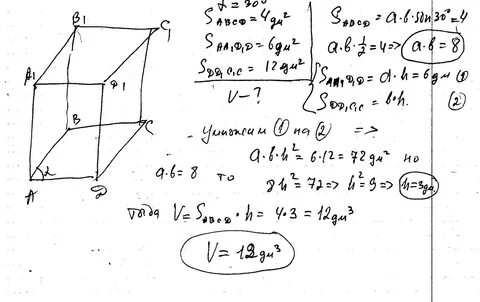 B₁
C₁
A₁
D₁
B
C
α
A
D
S_ABCD = 4 дм²
S_AA₁D₁D = 6 дм²
S_DD₁C₁C = 12 дм²
V - ?
S_ABCD = a·b·sin 30° = 4
a·b·1/2 = 4 => a·b = 8
S_AA₁D₁D = a·h = 6 дм (1)
S_DD₁C₁C = b·h. (2)
Умножим (1) на (2) =>
a·b·h² = 6·12 = 72 дм² но
a·b = 8 то 8h² = 72 => h² = 9 => h = 3 дм
тогда V = S_ABCD · h = 4·3 = 12 дм³
V = 12 дм³